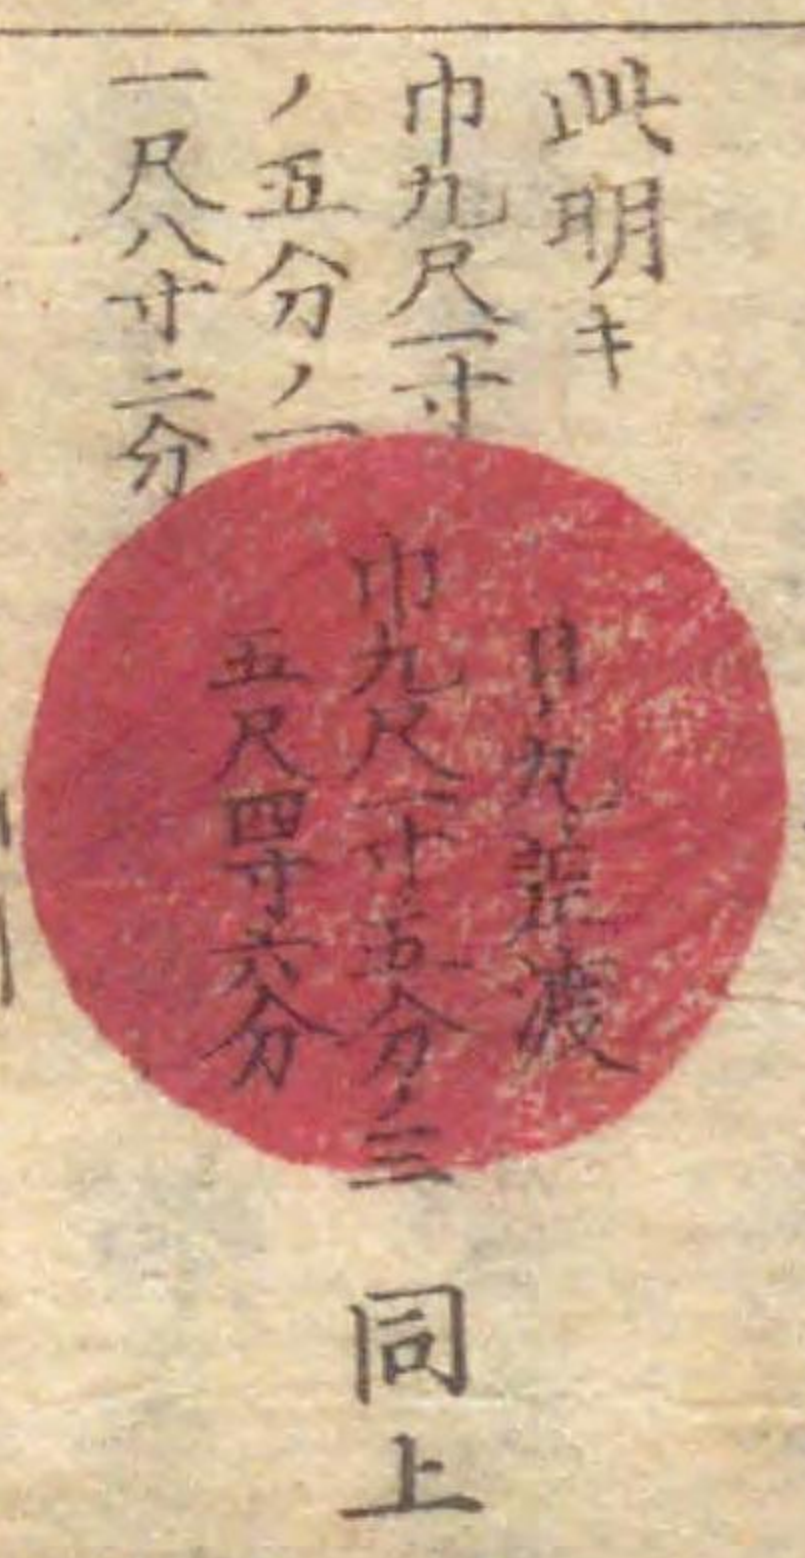 此明キ
巾九尺一寸
ノ五分ノ一
一尺八寸二分
日ノ丸差渡
巾九尺一寸ノ五分ノ三
五尺四寸六分
同上